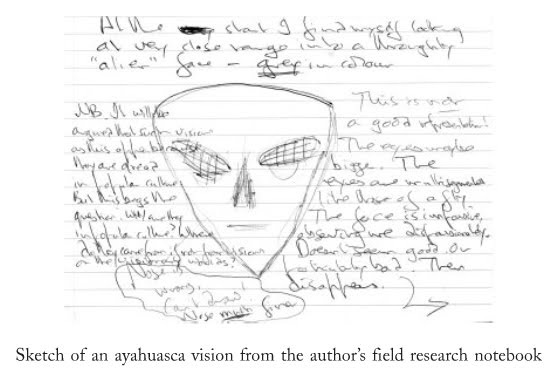 At the start I find myself looking
at very close range into a thoroughly
"alien" face – grey in colour
NB. It will be
argued that such visions
as this appear because
they are already
in popular culture.
But this begs the
question. Why are they
in popular culture? Where
do they come from, if not from visions
Nose is
wrong.
Can't draw!
Nose much finer
This is not
a good representation!
The eyes maybe
bigger. The
eyes are multi segmented
like those of a fly.
The face is impassive,
observing me dispassionately.
Doesn't seem good. Or
particularly bad. Then
disappears.
Sketch of an ayahuasca vision from the author's field research notebook